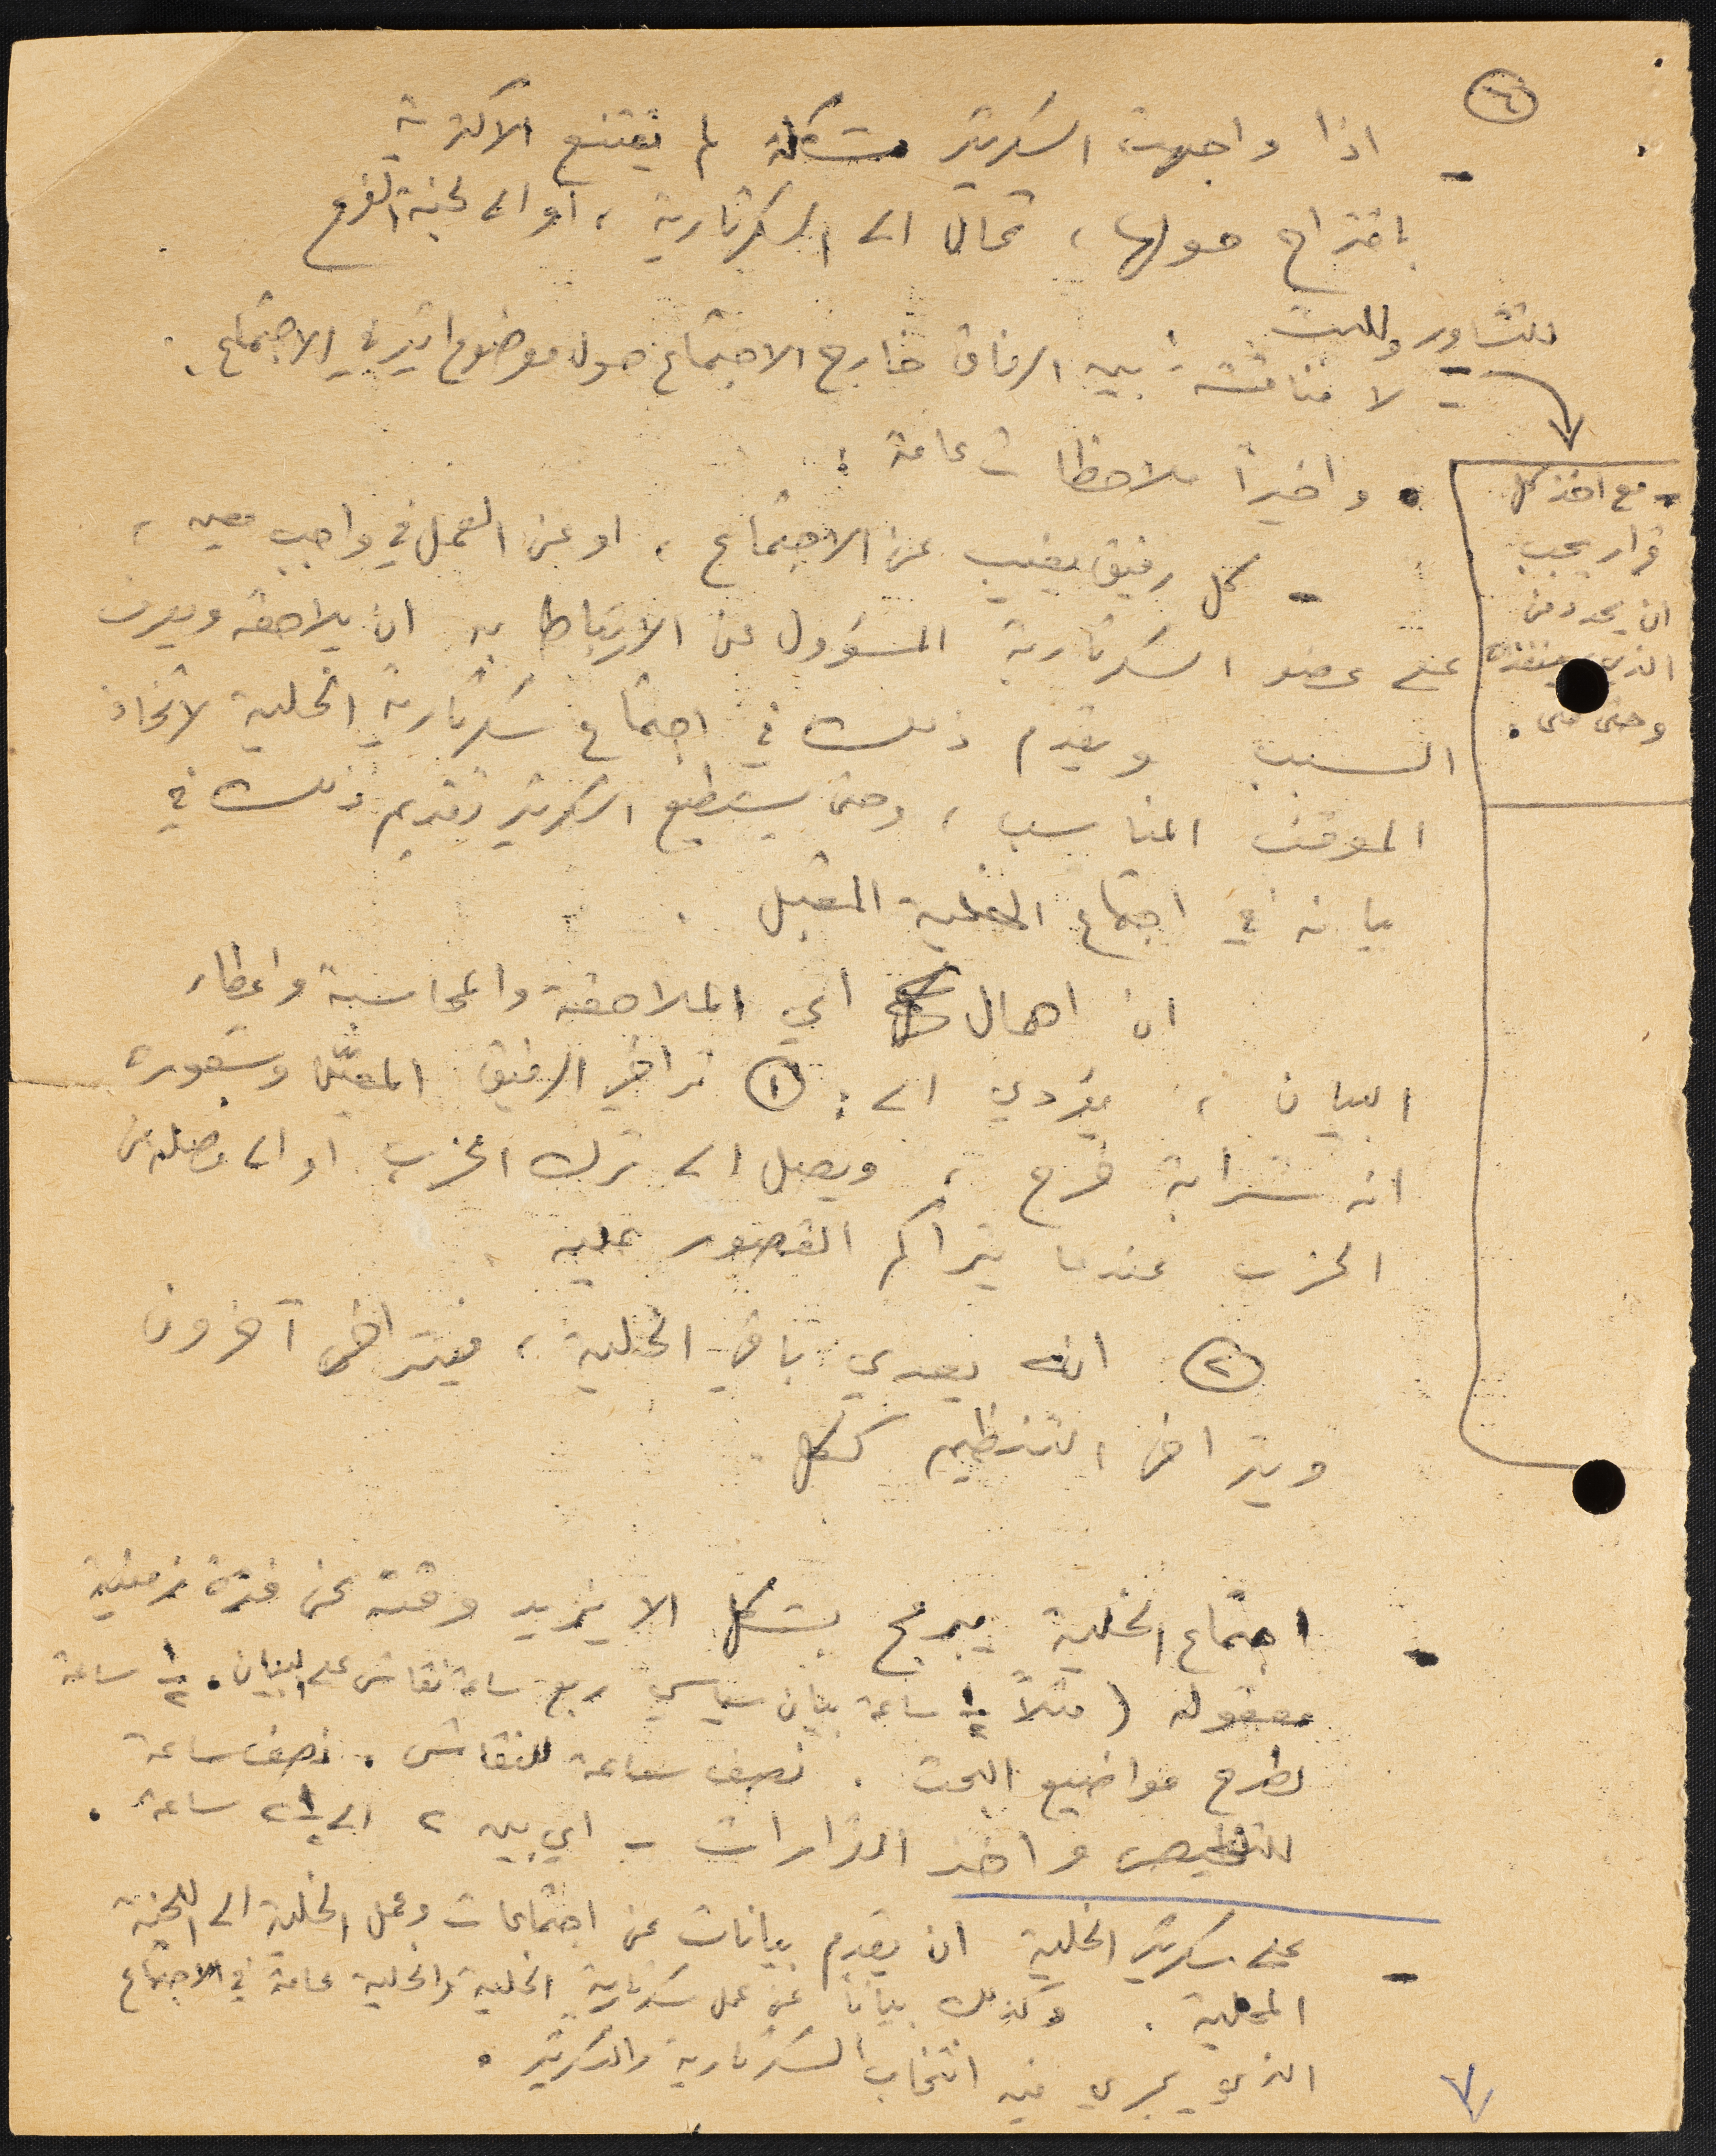 ٦
- اذا واجهت السكرتير مشكلة لم تقتنع الاكثرية
باقتراح حولها، تحال الى السكرتارية، أو الى لجنة الفرع
للتشاور وللبت
- لا مناقشة بين الرفاق خارج الاجتماع حول موضوع اثير في الاجتماع.
- مع اخذ كل
قرار يجب
ان يحدد من
الذي ينفذه
وحتى متى.
• واخيراً ملاحظات عامة:
- كل رفيق يغيب عن الاجتماع، او عن العمل في واجب معين،
على عضو السكرتارية المسؤول عن الارتباط به ان يلاحقه ويعرف
السبب ويقدم ذلك في اجتماع سكرتارية الخلية لاتخاذ
الموقف المناسب، وحتى يستطيع السكرتير تقديم ذلك في
بيانه في اجتماع الخلية المقبل.
ان اهمال اي الملاحقة والمحاسبة واعطاء
البيان، يؤدي الى: ① تراخي الرفيق المعيّن وشعوره
انه شرابة خرج، ويصل الى ترك الحزب او الى فصله من
الحزب عندما يتراكم القصور عليه.
② انه يعدي باقي الخلية، فيتراخى آخرون
ويتراخى التنظيم ككل.
- اجتماع الخلية يبرمج بشكل الا يزيد وقته عن فترة زمنية
معقولة (مثلاً ١/٢ ساعة بيان سياسي ربع ساعة نقاش على البيان. ١/٢ ساعة
لطرح مواضيع البحث. نصف ساعة للنقاش. نصف ساعة
للتلخيص واخذ القرارات - اي بين ٢ الى ٢ ١/٢ ساعة.
- على سكرتير الخلية ان يقدم بيانات عن اجتماعات وعمل الخلية الى اللجنة
المحلية. وكذلك بياناً عن عمل سكرتارية الخلية والخلية عامة في الاجتماع
الذي يجري فيه انتخاب السكرتارية والسكرتير.
٧